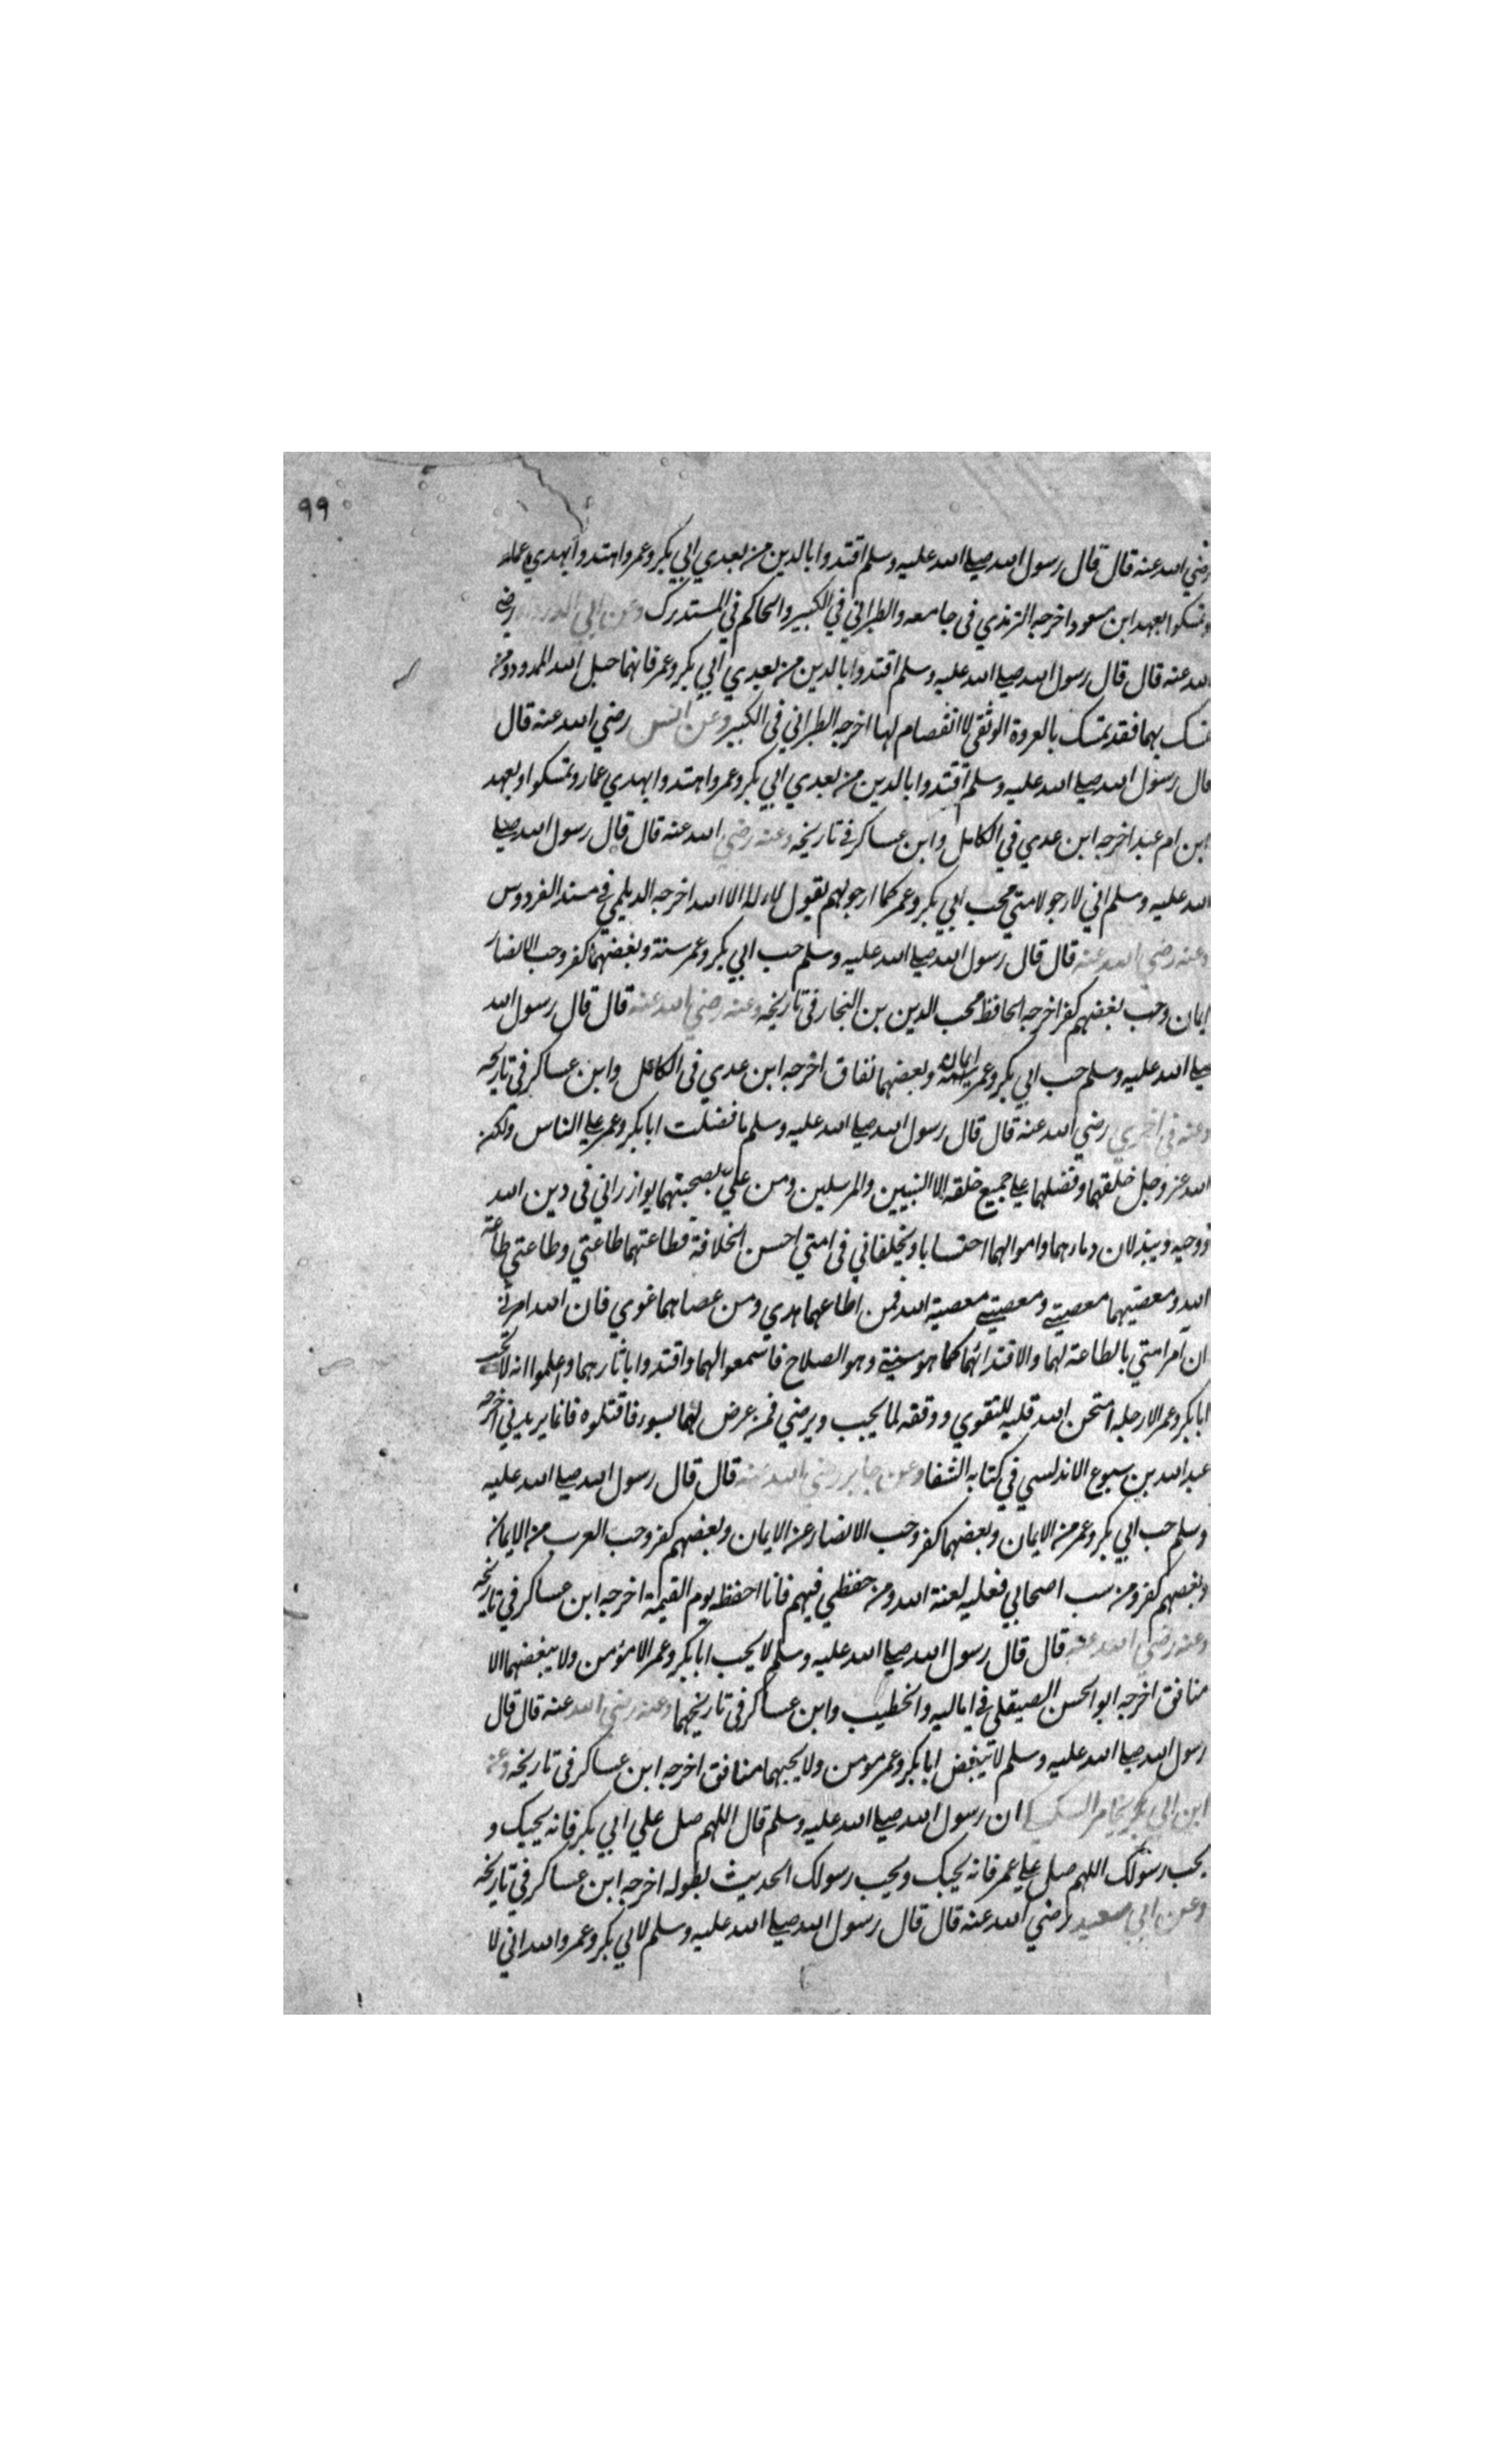 ٩٩
رضي الله عنه قال قال رسول الله صلي الله عليه وسلم اقتدوا بالذين من بعدي ابي بكر وعمر واهتدوا بهدي عمار
وتمسكوا بعهد ابن مسعود اخرجه الترمذي في جامعه والطبراني في الكبير والحاكم في المستدرك وعن ابي الدرداء رضي
الله عنه قال قال رسول الله صلي الله عليه وسلم اقتدوا بالذين من بعدي ابي بكر وعمر فانهما حبل الله الممدود ومن
تمسك بهما فقد تمسك بالعروة الوثقي لا انفصام لها اخرجه الطبراني في الكبير وعن انس رضي الله عنه قال
قال رسول الله صلي الله عليه وسلم اقتدوا بالذين من بعدي ابي بكر وعمر واهتدوا بهدي عمار وتمسكوا وبعهد
ابن ام عبد اخرجه ابن عدي في الكامل وابن عساكر في تاريخه وعنه رضي الله عنه قال قال رسول الله صلي
الله عليه وسلم اني لارجو لامتي بحب ابي بكر وعمر كما ارجو بهم بقول لا اله الا الله اخرجه الديلمي في مسند الفردوس
وعنه رضي الله عنه قال قال رسول الله صلي الله عليه وسلم حب ابي بكر وعمر سنة وبغضهما كفر وحب الانصار
ايمان وحب بغضهم كفر اخرجه الحافظ محب الدين بن النجار في تاريخه وعنه رضي الله عنه قال قال رسول الله
صلي الله عليه وسلم حب ابي بكر وعمر ايمان وبغضهما نفاق اخرجه ابن عدي في الكامل وابن عساكر في تاريخه
وعنه في اخري رضي الله عنه قال قال رسول الله صلي الله عليه وسلم ما فضلت ابا بكر وعمر علي الناس ولكن
الله عز وجل خلقهما وفضلهما علي جميع خلقه الا النبيين والمرسلين ومن علي بصحبتهما يوازراني في دين الله
ووحيه ويبذلان دمارهما واموالهما احتسابا ويخلفاني في امتي احسن الخلافة فطاعتهما طاعتي وطاعتي طاعة
الله ومعصيتهما معصيتي ومعصيتي معصية الله فمن اطاعهما هدي ومن عصاهما غوي فان الله امرني
ان آمر امتي بالطاعة لهما والاقتدا بهما كما هو سنتي وهو الصلاح فاسمعوا لهما واقتدوا باثارهما واعلموا انه لا يحب
ابا بكر وعمر الا رجله امتحن الله قلبه للتقوي ووفقه لما يحب ويرضي فمن عرض لهما بسوء فاقتلوه فانما يريدني اخرجه
عبد الله بن سبوع الاندلسي في كتابه الشفا وعن جابر رضي الله عنه قال قال رسول الله صلي الله عليه
وسلم حب ابي بكر وعمر من الايمان وبغضهما كفر وحب الانصار من الايمان وبغضهم كفر وحب العرب من الايمان
وبغضهم كفر ومن سب اصحابي فعليه لعنة الله ومن حفظي فيهم فانا احفظه يوم القيمة اخرجه ابن عساكر في تاريخه
وعنه رضي الله عنه قال قال رسول الله صلي الله عليه وسلم لا يحب ابا بكر وعمر الا مؤمن ولا يبغضهما الا
منافق اخرجه ابو الحسن الصيقلي في اماليه والخطيب وابن عساكر في تاريخهما وعنه رضي الله عنه قال قال
رسول الله صلي الله عليه وسلم لا يبغض ابا بكر وعمر مومن ولا يحبهما منافق اخرجه ابن عساكر في تاريخه وعن
ابن ابي بكر ان رسول الله صلي الله عليه وسلم قال اللهم صل علي ابي بكر فانه يحبك و
يحب رسولك اللهم صل علي عمر فانه يحبك ويحب رسولك الحديث بطوله اخرجه ابن عساكر في تاريخه
وعن ابي سعيد رضي الله عنه قال قال رسول الله صلي الله عليه وسلم لابي بكر وعمر والله اني لا